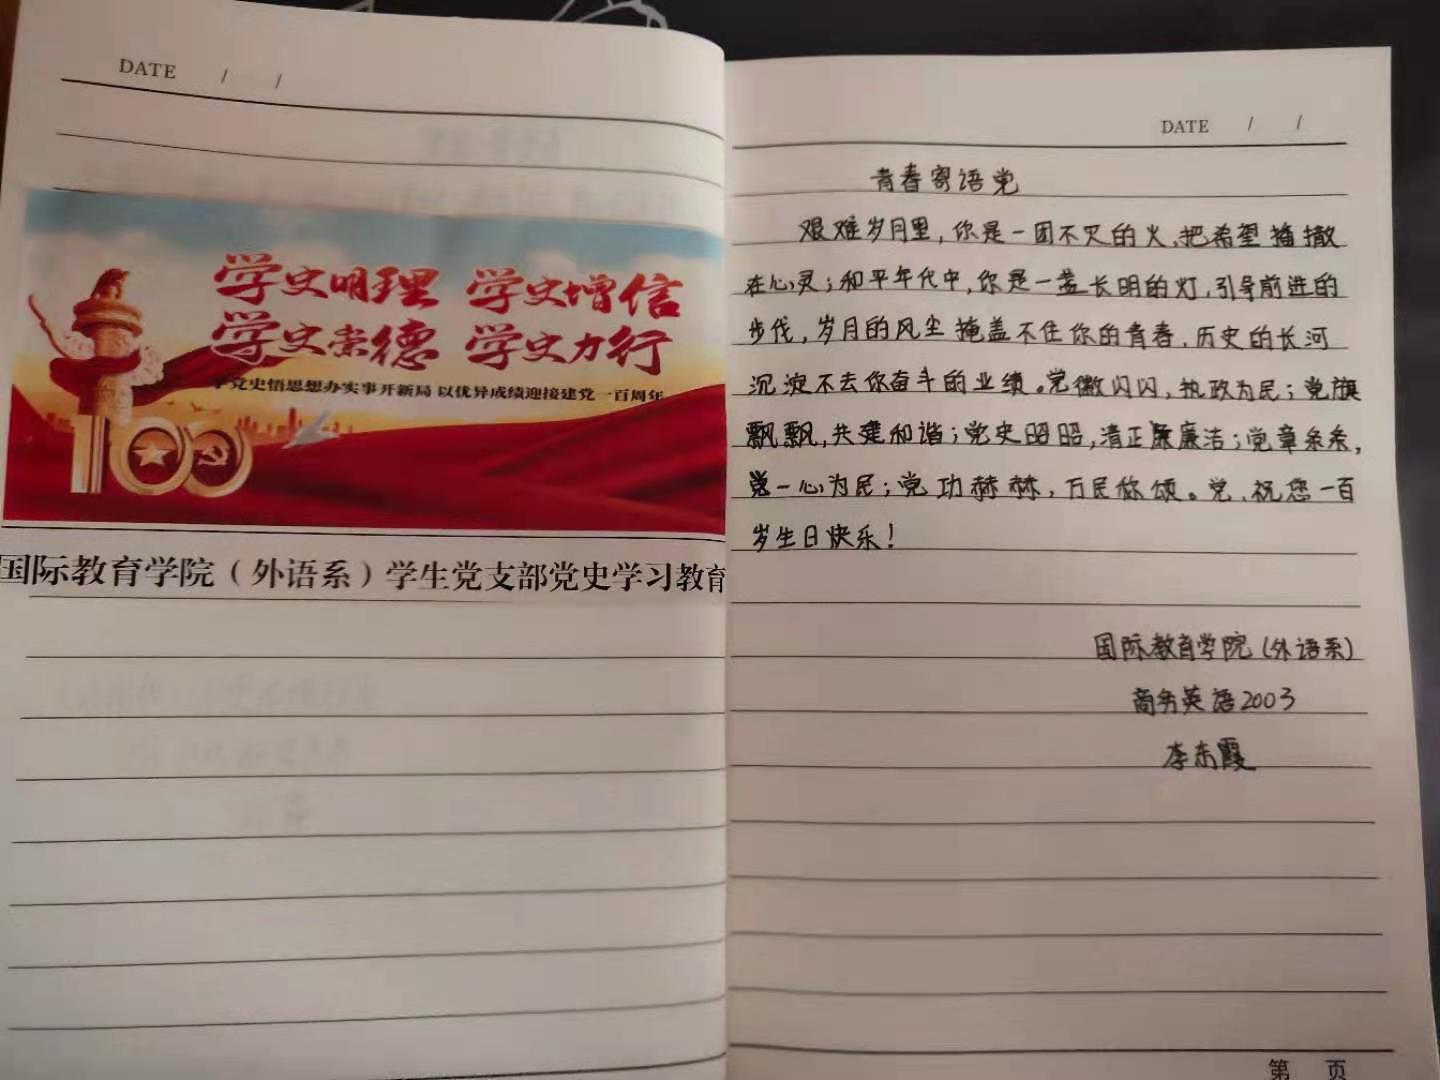 DATE / /
学史明理 学史增信
学史崇德 学史力行
学党史悟思想办实事开新局 以优异成绩迎接建党一百周年
100
国际教育学院（外语系）学生党支部党史学习教育
DATE / /
青春寄语党
艰难岁月里，你是一团不灭的火，把希望播撒
在心灵；和平年代中，你是一盏长明的灯，引导前进的
步伐，岁月的风尘掩盖不住你的青春，历史的长河
沉淀不去你奋斗的业绩。党徽闪闪，执政为民；党旗
飘飘，共建和谐；党史昭昭，清正廉洁；党章条条，
党一心为民；党功赫赫，万民称颂。党，祝您一百
岁生日快乐！
国际教育学院（外语系）
商务英语2003
李东霞
第 页